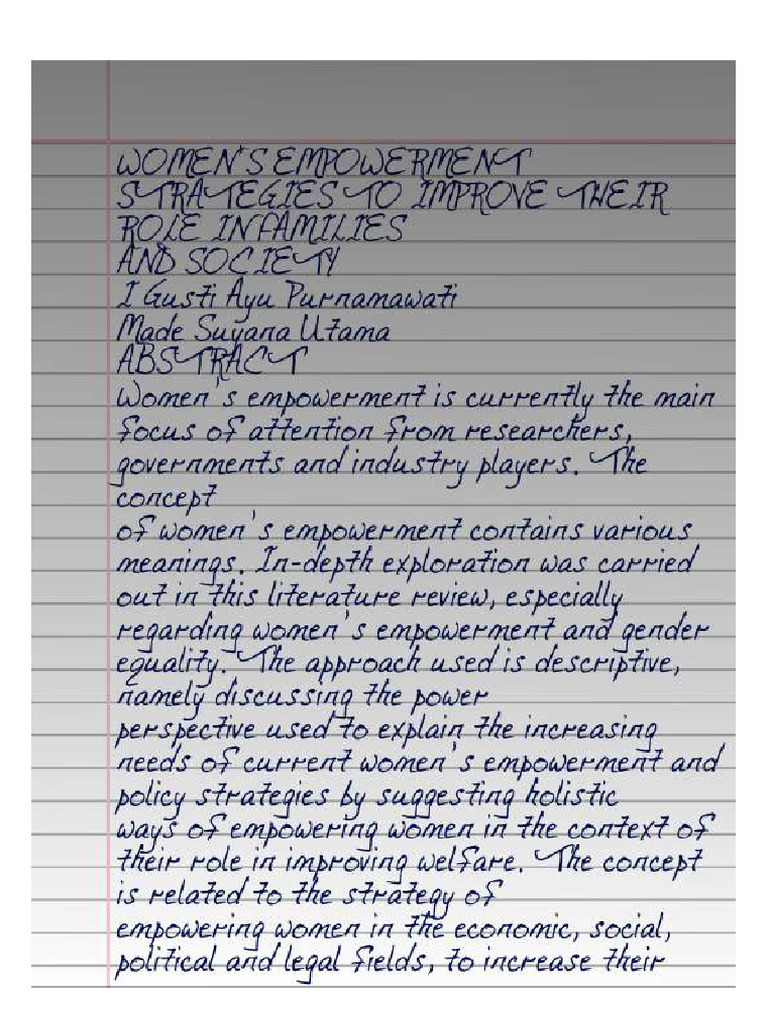 WOMEN'S EMPOWERMENT
STRATEGIES TO IMPROVE THEIR
ROLE IN FAMILIES
AND SOCIETY
I Gusti Ayu Purnamawati
Made Suyana Utama
ABSTRACT
Women's empowerment is currently the main
focus of attention from researchers,
governments and industry players. The
concept
of women's empowerment contains various
meanings. In-depth exploration was carried
out in this literature review, especially
regarding women's empowerment and gender
equality. The approach used is descriptive,
namely discussing the power
perspective used to explain the increasing
needs of current women's empowerment and
policy strategies by suggesting holistic
ways of empowering women in the context of
their role in improving welfare. The concept
is related to the strategy of
empowering women in the economic, social,
political and legal fields, to increase their